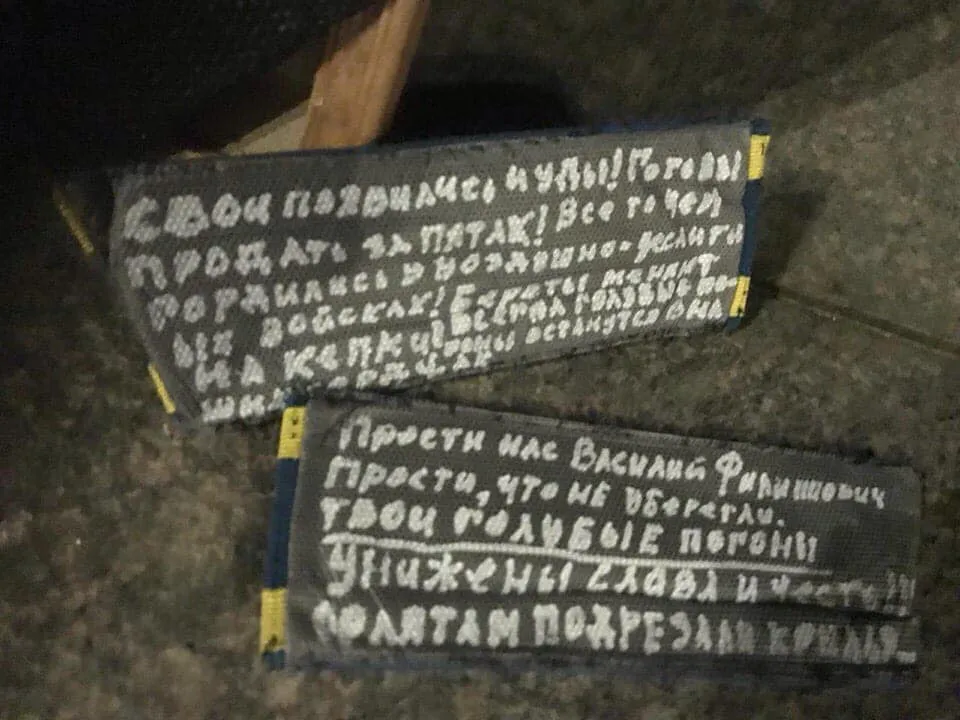 СВОИ ПОЯВИЛИСЬ ИУДЫ! ГОТОВЫ
ПРОДАТЬ ЗА ПЯТАК! ВСЕ ТО ЧЕМ
ГОРДИЛИСЬ В ВОЗДУШНО-ДЕСАНТН
ЫХ ВОЙСКАХ! БЕРЕТЫ МЕНЯЮТ
НА КЕПКИ! ГОЛУБЫЕ ПО-
ГОНЫ ОСТАНУТСЯ В НА
ШИХ СЕРДЦАХ
ПРОСТИ НАС ВАСИЛИЙ ФИЛИППОВИЧ
ПРОСТИ, ЧТО НЕ УБЕРЕГЛИ.
ТВОИ ГОЛУБЫЕ ПОГОНЫ
УНИЖЕНЫ СЛАВА И ЧЕСТЬ!!!
СОЛДАТАМ ПОДРЕЗАЛИ КРЫЛЬЯ...